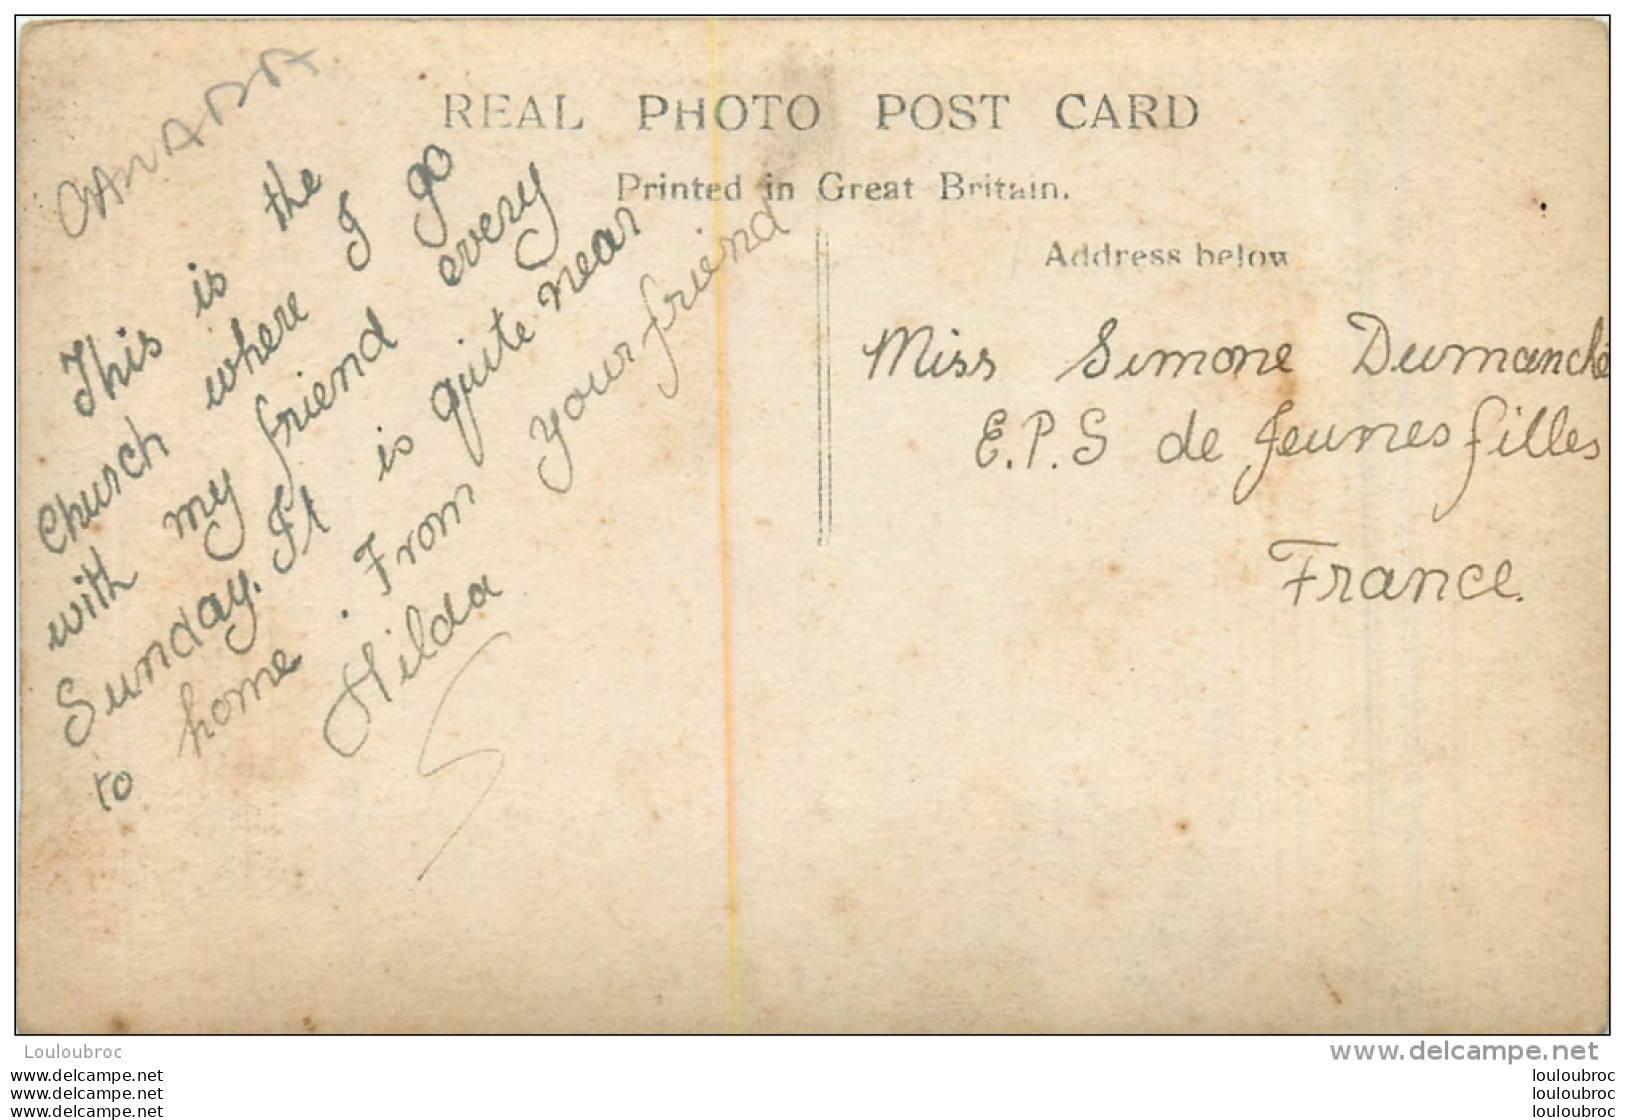 REAL PHOTO POST CARD
Printed in Great Britain.
Address below
CANADA
This is the
church where I go
with my friend every
Sunday. It is quite near
to home. From your friend
Hilda
Miss Simone Dumanché
E.P.S de Jeunes filles
France.
Louloubroc
www.delcampe.net
www.delcampe.net
www.delcampe.net
www.delcampe.net
louloubroc
louloubroc
louloubroc